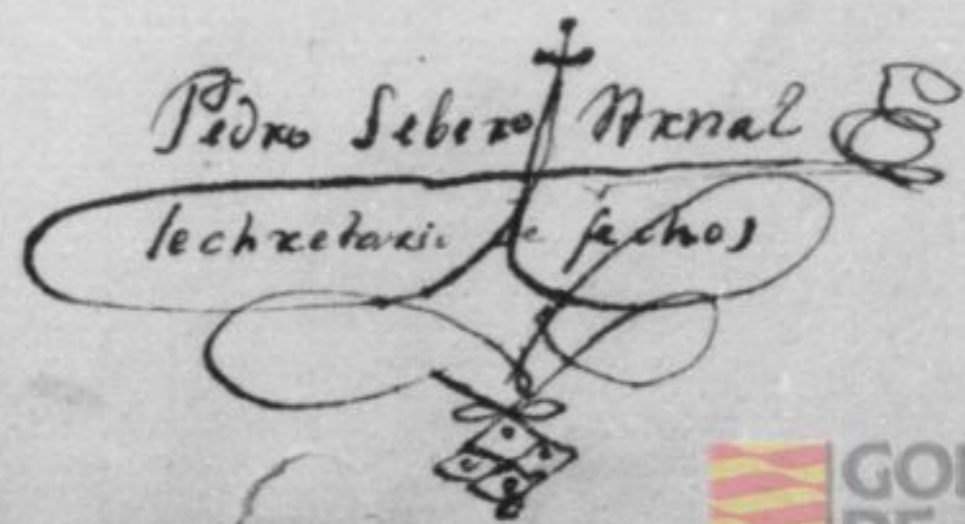 Pedro Sebero Arnal
sechretario de fechos
GO